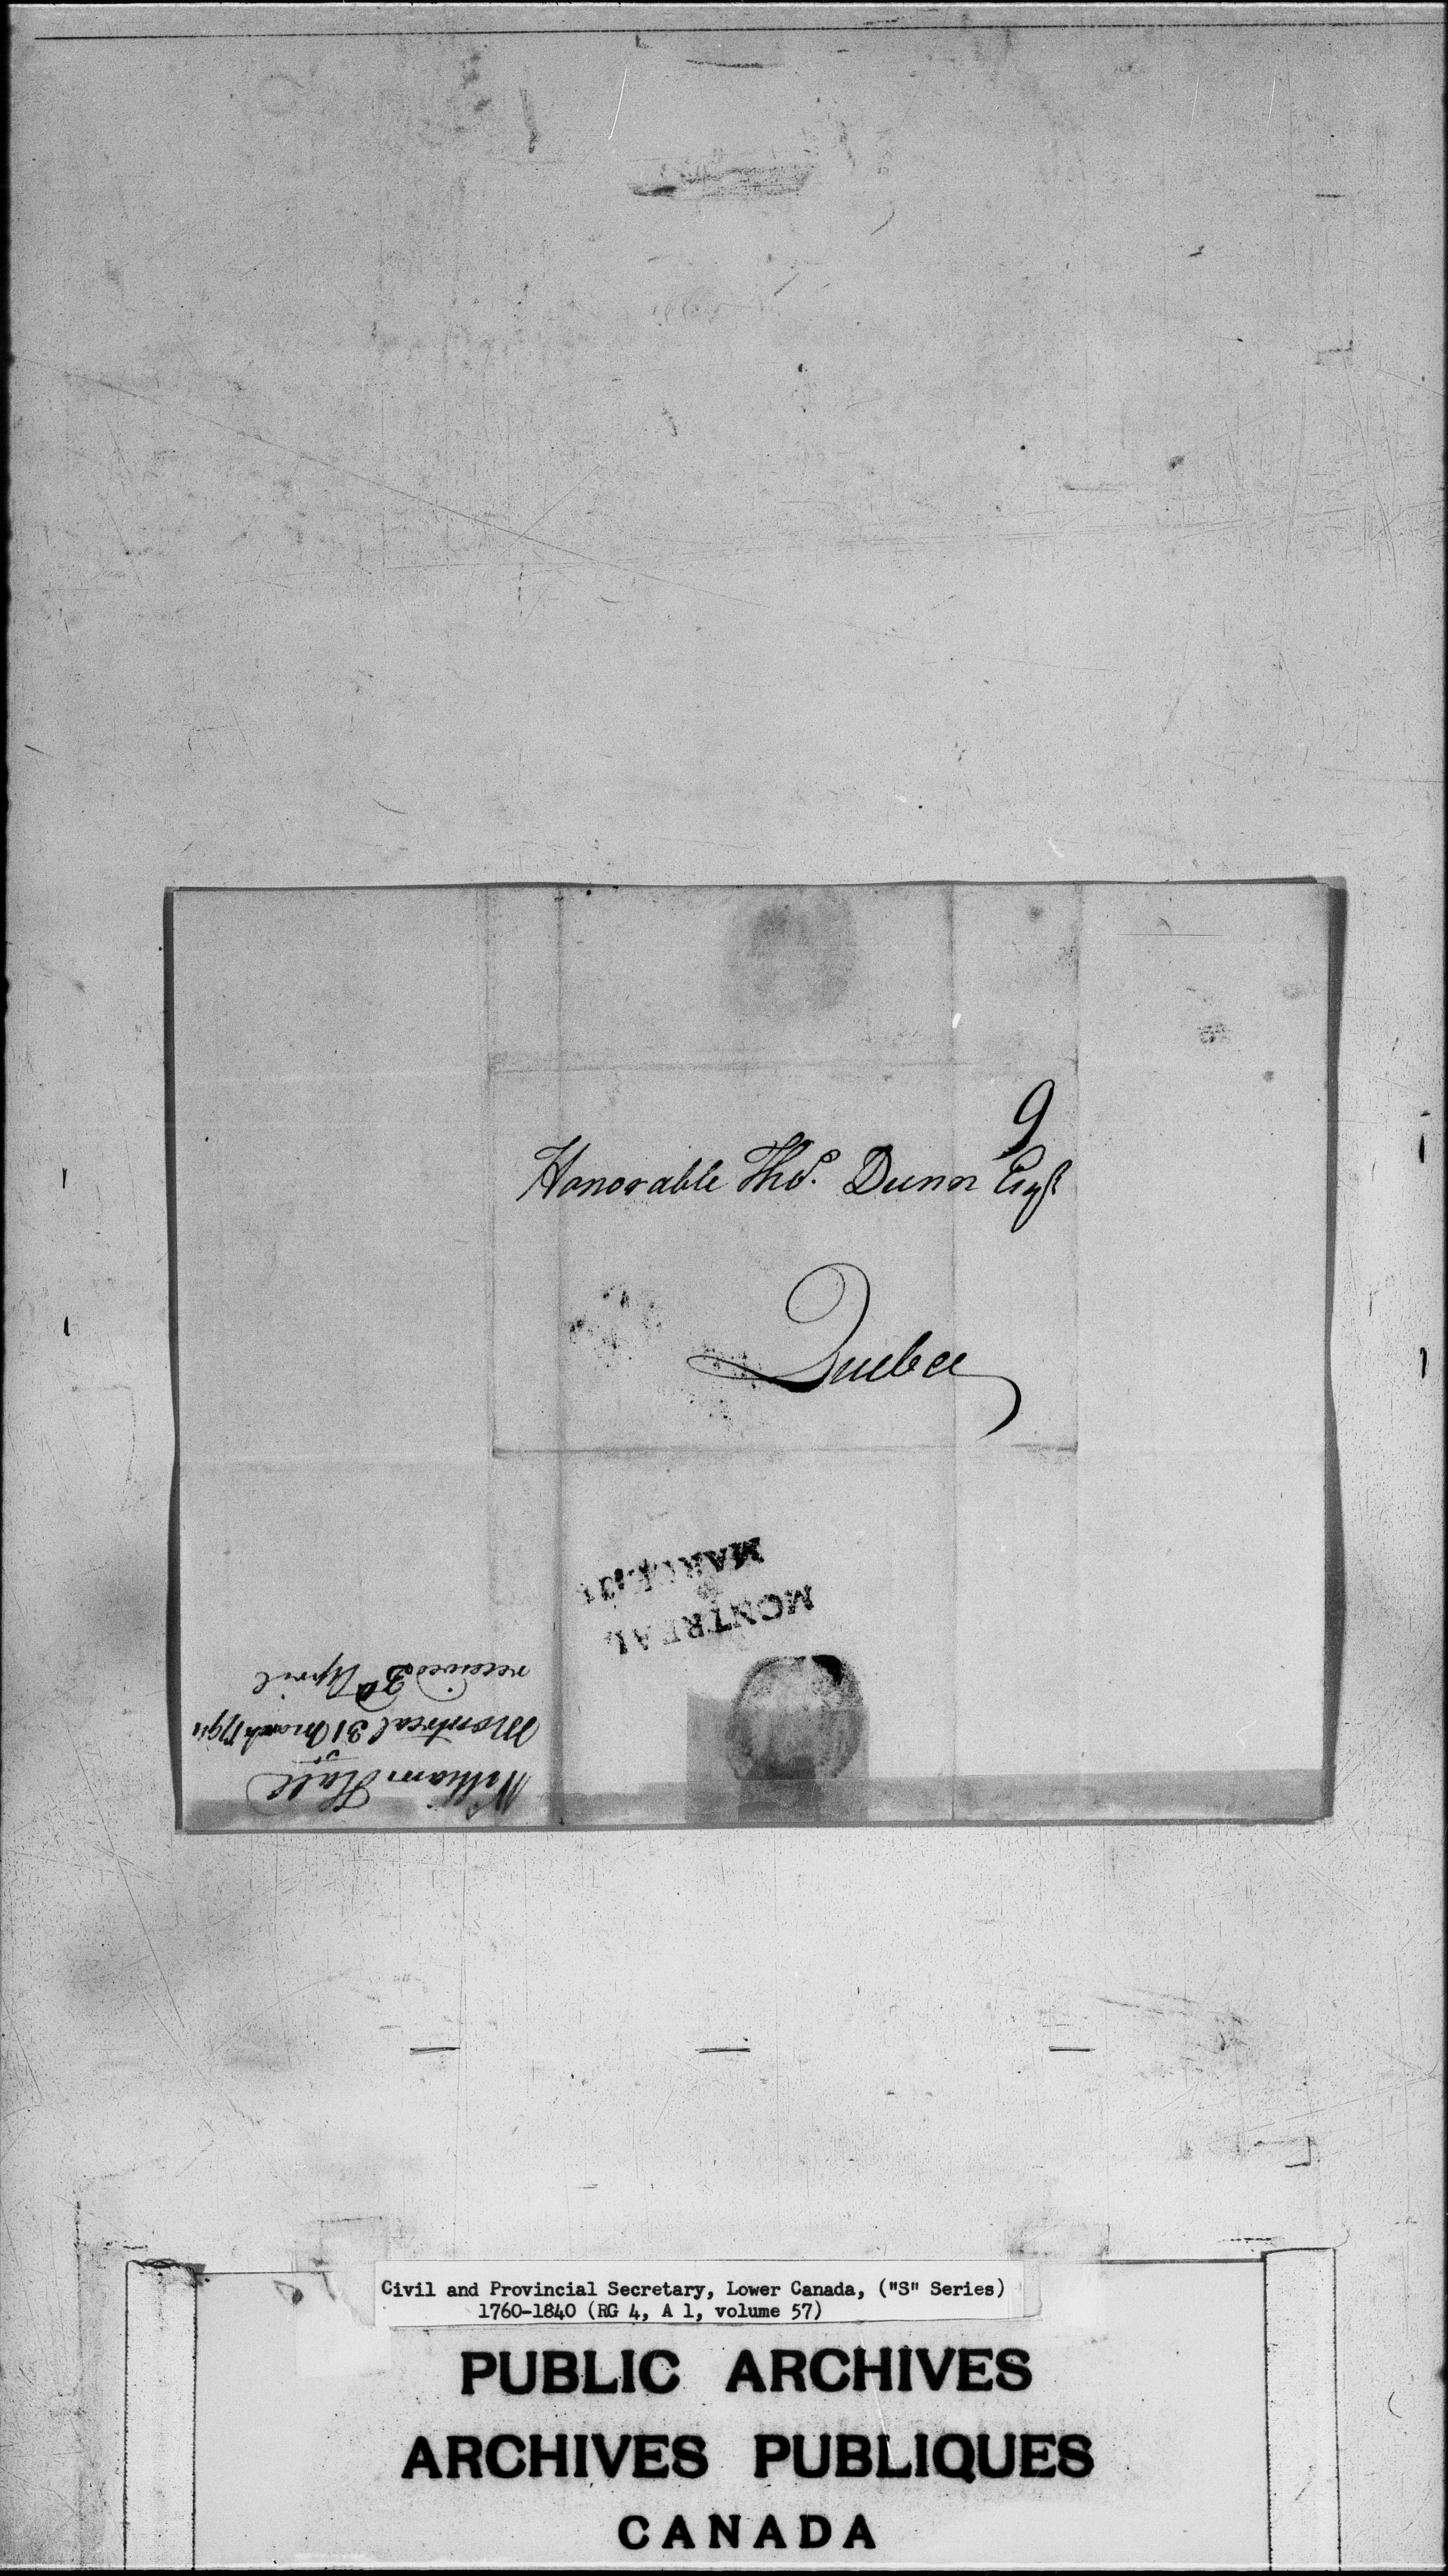 9
Honorable Tho.s Dunn Esq.r
Quebec
MONTREAL
MARCH
William Hall
Montreal 31 March
received 3d April
Civil and Provincial Secretary, Lower Canada, ("S" Series)
1760-1840 (RG 4, A 1, volume 57)
PUBLIC ARCHIVES
ARCHIVES PUBLIQUES
CANADA